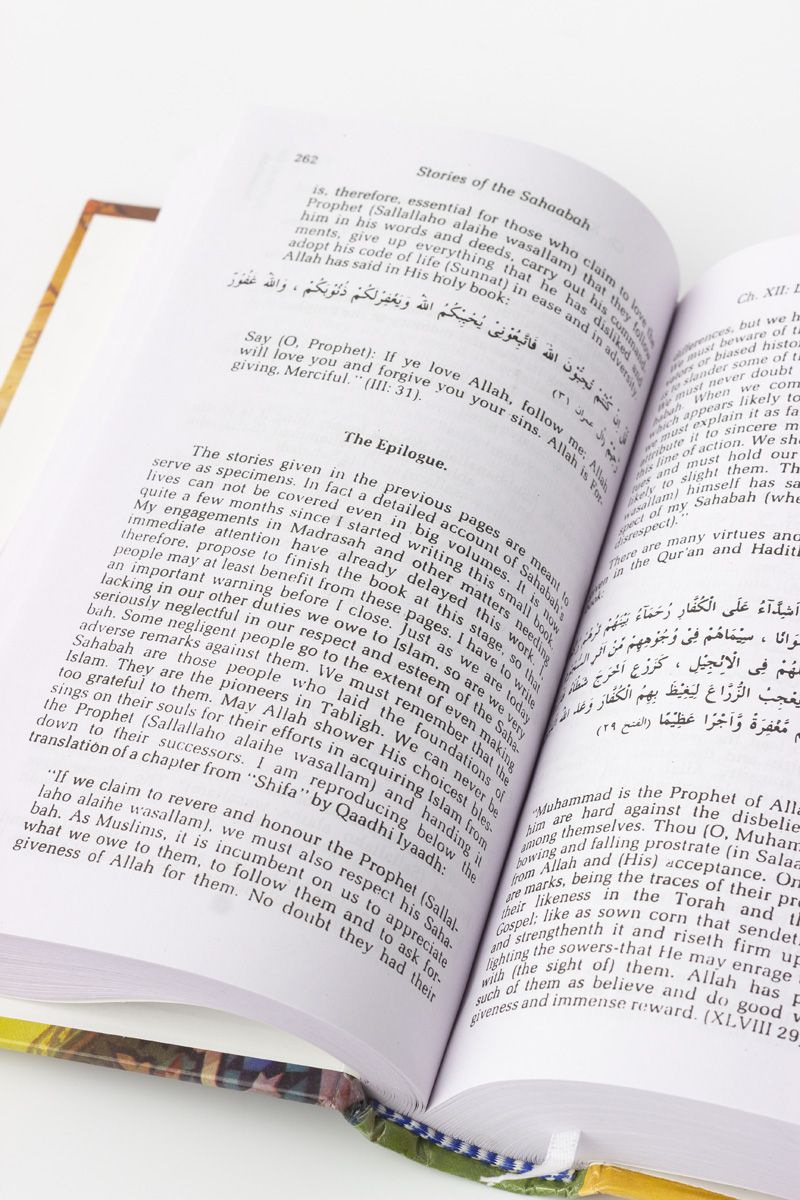 262
Stories of the Sahaabah
is, therefore, essential for those who claim to love the
Prophet (Sallallaho alaihe wasallam) that they follow
him in his words and deeds, carry out his command-
ments, give up everything that he has disliked and
adopt his code of life (Sunnat) in ease and in adversity.
Allah has said in His holy book:
قُلْ اِنْ كُنْتُمْ تُحِبُّوْنَ اللهَ فَاتَّبِعُوْنِىْ يُحْبِبْكُمُ اللهُ وَيَغْفِرْلَكُمْ ذُنُوْبَكُمْ ، وَاللهُ غَفُوْرٌ
رَحِيْمٌ (آل عمران ٣)
Say (O, Prophet): If ye love Allah, follow me: Allah
will love you and forgive you your sins. Allah is For-
giving, Merciful." (III: 31).
The Epilogue.
The stories given in the previous pages are meant to
serve as specimens. In fact a detailed account of Sahabah's
lives can not be covered even in big volumes. It is now
quite a few months since I started writing this small book.
My engagements in Madrasah and other matters needing
immediate attention have already delayed this work. I,
therefore, propose to finish the book at this stage, so that
people may at least benefit from these pages. I have to write
an important warning before I close. Just as we are today
lacking in our other duties we owe to Islam, so are we very
seriously neglectful in our respect and esteem of the Saha-
bah. Some negligent people go to the extent of even making
adverse remarks against them. We must remember that the
Sahabah are those people who laid the foundations of
Islam. They are the pioneers in Tabligh. We can never be
too grateful to them. May Allah shower His choicest bles-
sings on their souls for their efforts in acquiring Islam from
the Prophet (Sallallaho alaihe wasallam) and handing it
down to their successors. I am reproducing below the
translation of a chapter from "Shifa" by Qaadhi Iyaadh:
"If we claim to revere and honour the Prophet (Sallal-
laho alaihe wasallam), we must also respect his Saha-
bah. As Muslims, it is incumbent on us to appreciate
what we owe to them, to follow them and to ask for-
giveness of Allah for them. No doubt they had their
Ch. XII:
differences, but we
We must beware of
or biased
is to slander some of
must never doubt
When we
which appears likely to
must explain it as
it to sincere
this line of action. We
and must hold our
likely to slight them.
wasallam) himself has
spect of my Sahabah
disrespect)."
There are many virtues
in the Qur'an and Hadith
اَشِدَّآءُ عَلَى الْكُفَّارِ رُحَمَآءُ بَيْنَهُمْ
سِيْمَاهُمْ فِىْ وُجُوْهِهِمْ مِّنْ اَثَرِ
فِى الْاِنْجِيْلِ ، كَزَرْعٍ اَخْرَجَ شَطْأَهٗ
يُعْجِبُ الزُّرَّاعَ لِيَغِيْظَ بِهِمُ الْكُفَّارَ وَعَدَ اللهُ
مَّغْفِرَةً وَّاَجْرًا عَظِيْمًا (الفتح ٢٩)
"Muhammad is the Prophet of
him are hard against the
among themselves. Thou (O,
bowing and falling prostrate (in
from Allah and (His) acceptance.
are marks, being the traces of their
their likeness in the Torah and
Gospel; like as sown corn that
and strengthenth it and riseth firm
lighting the sowers-that He may enrage
with (the sight of) them. Allah has
such of them as believe and do good
giveness and immense reward. (XLVIII 29)